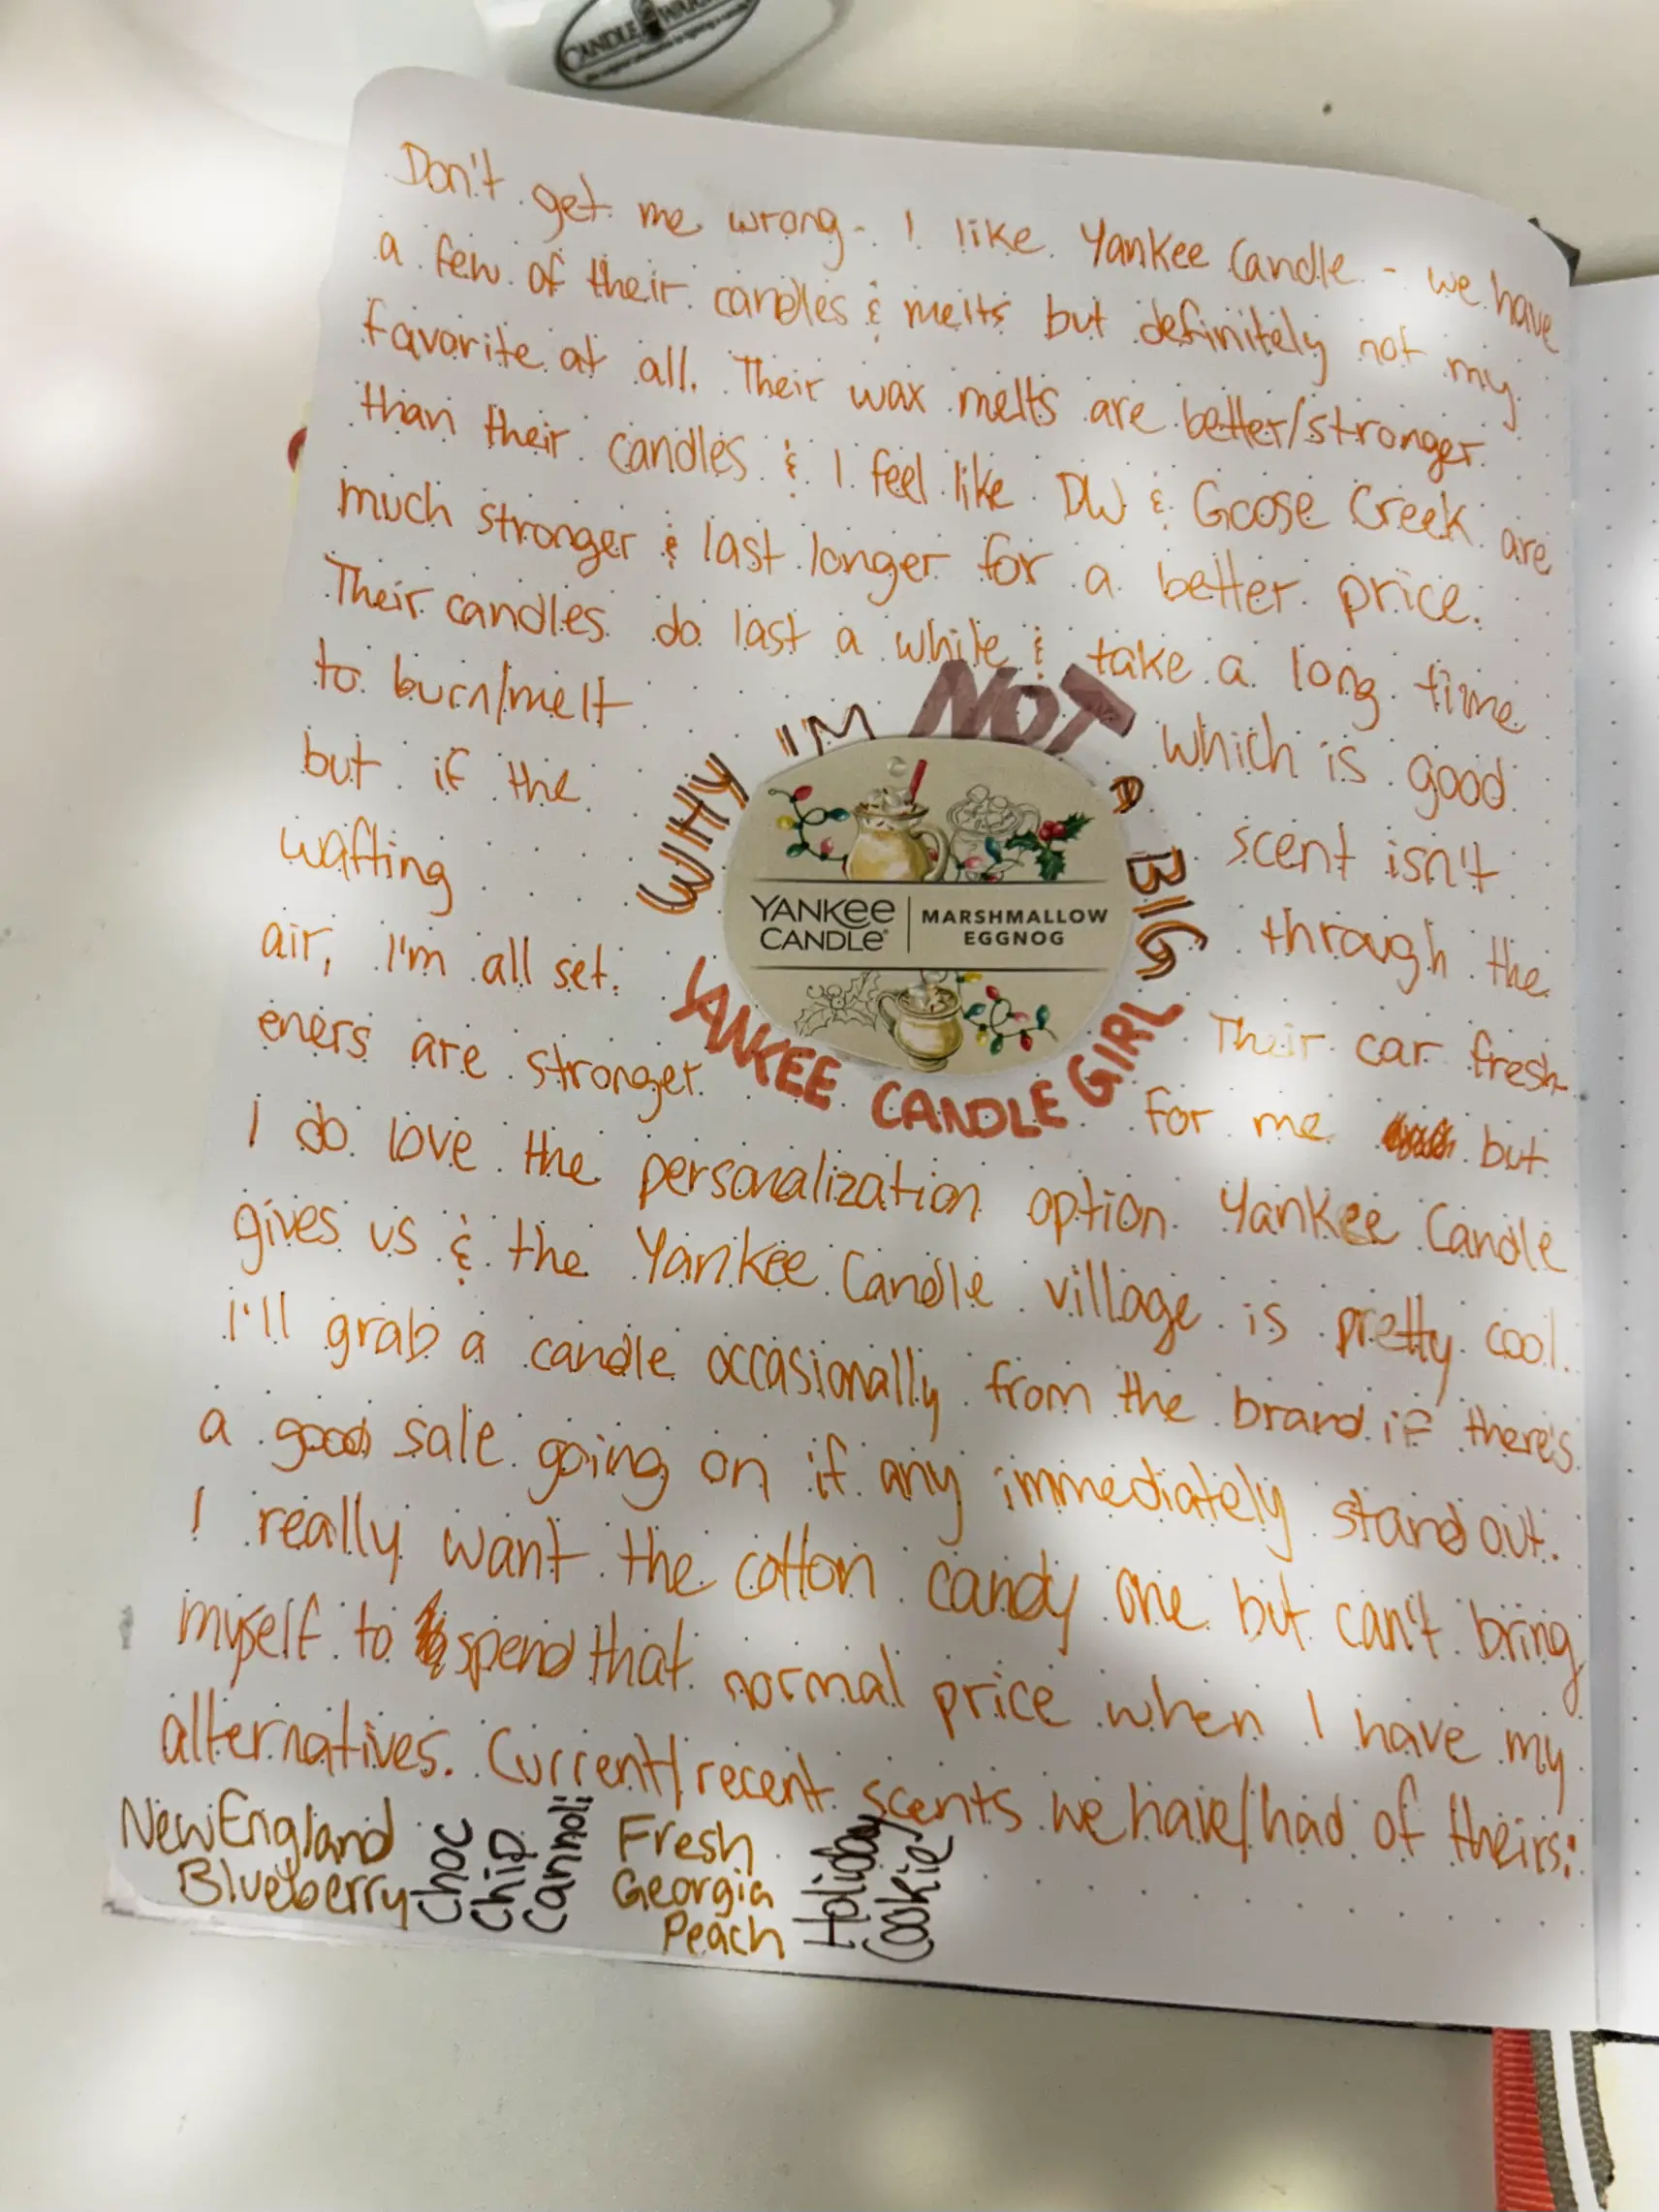 CANDLE WAR
Don't get me wrong - I like Yankee Candle - we have
a few of their candles & melts but definitely not my
favorite at all. Their wax melts are better/stronger
than their candles & I feel like DW & Goose Creek are
much stronger & last longer for a better price.
Their candles do last a while & take a long time
to burn/melt which is good
but if the scent isn't
wafting through the
air, I'm all set. Their car fresh-
eners are stronger for me but
I do love the personalization option Yankee Candle
gives us & the Yankee Candle village is pretty cool.
I'll grab a candle occasionally from the brand if there's
a good sale going on if any immediately stand out.
I really want the cotton candy one but can't bring
myself to spend that normal price when I have my
alternatives. Current/recent scents we have/had of theirs:
WHY I'M NOT A BIG
YANKEE CANDLE GIRL
YANKEE CANDLE® | MARSHMALLOW EGGNOG
New England
Blueberry
Choc
Chip
Cannoli
Fresh
Georgia
Peach
Holiday
Cookie